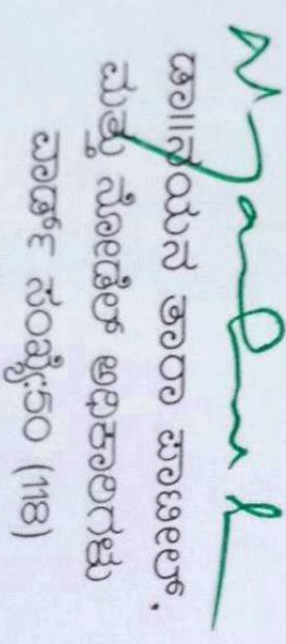 ಡಾ||ನಯನ ತಾರಾ ಪಾಟೀಲ್.
ಮತ್ತು ನೋಡೆಲ್ ಅಧಿಕಾರಿಗಳು
ವಾರ್ಡ್ ಸಂಖ್ಯೆ:50 (118)